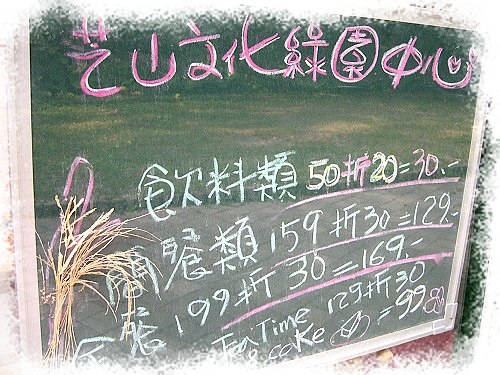 芝山文化綠園中心
飲料類 50折20=30.-
簡餐類 159折30=129.-
餐 199折30=169.-
Tea Time 129折30
cake =99